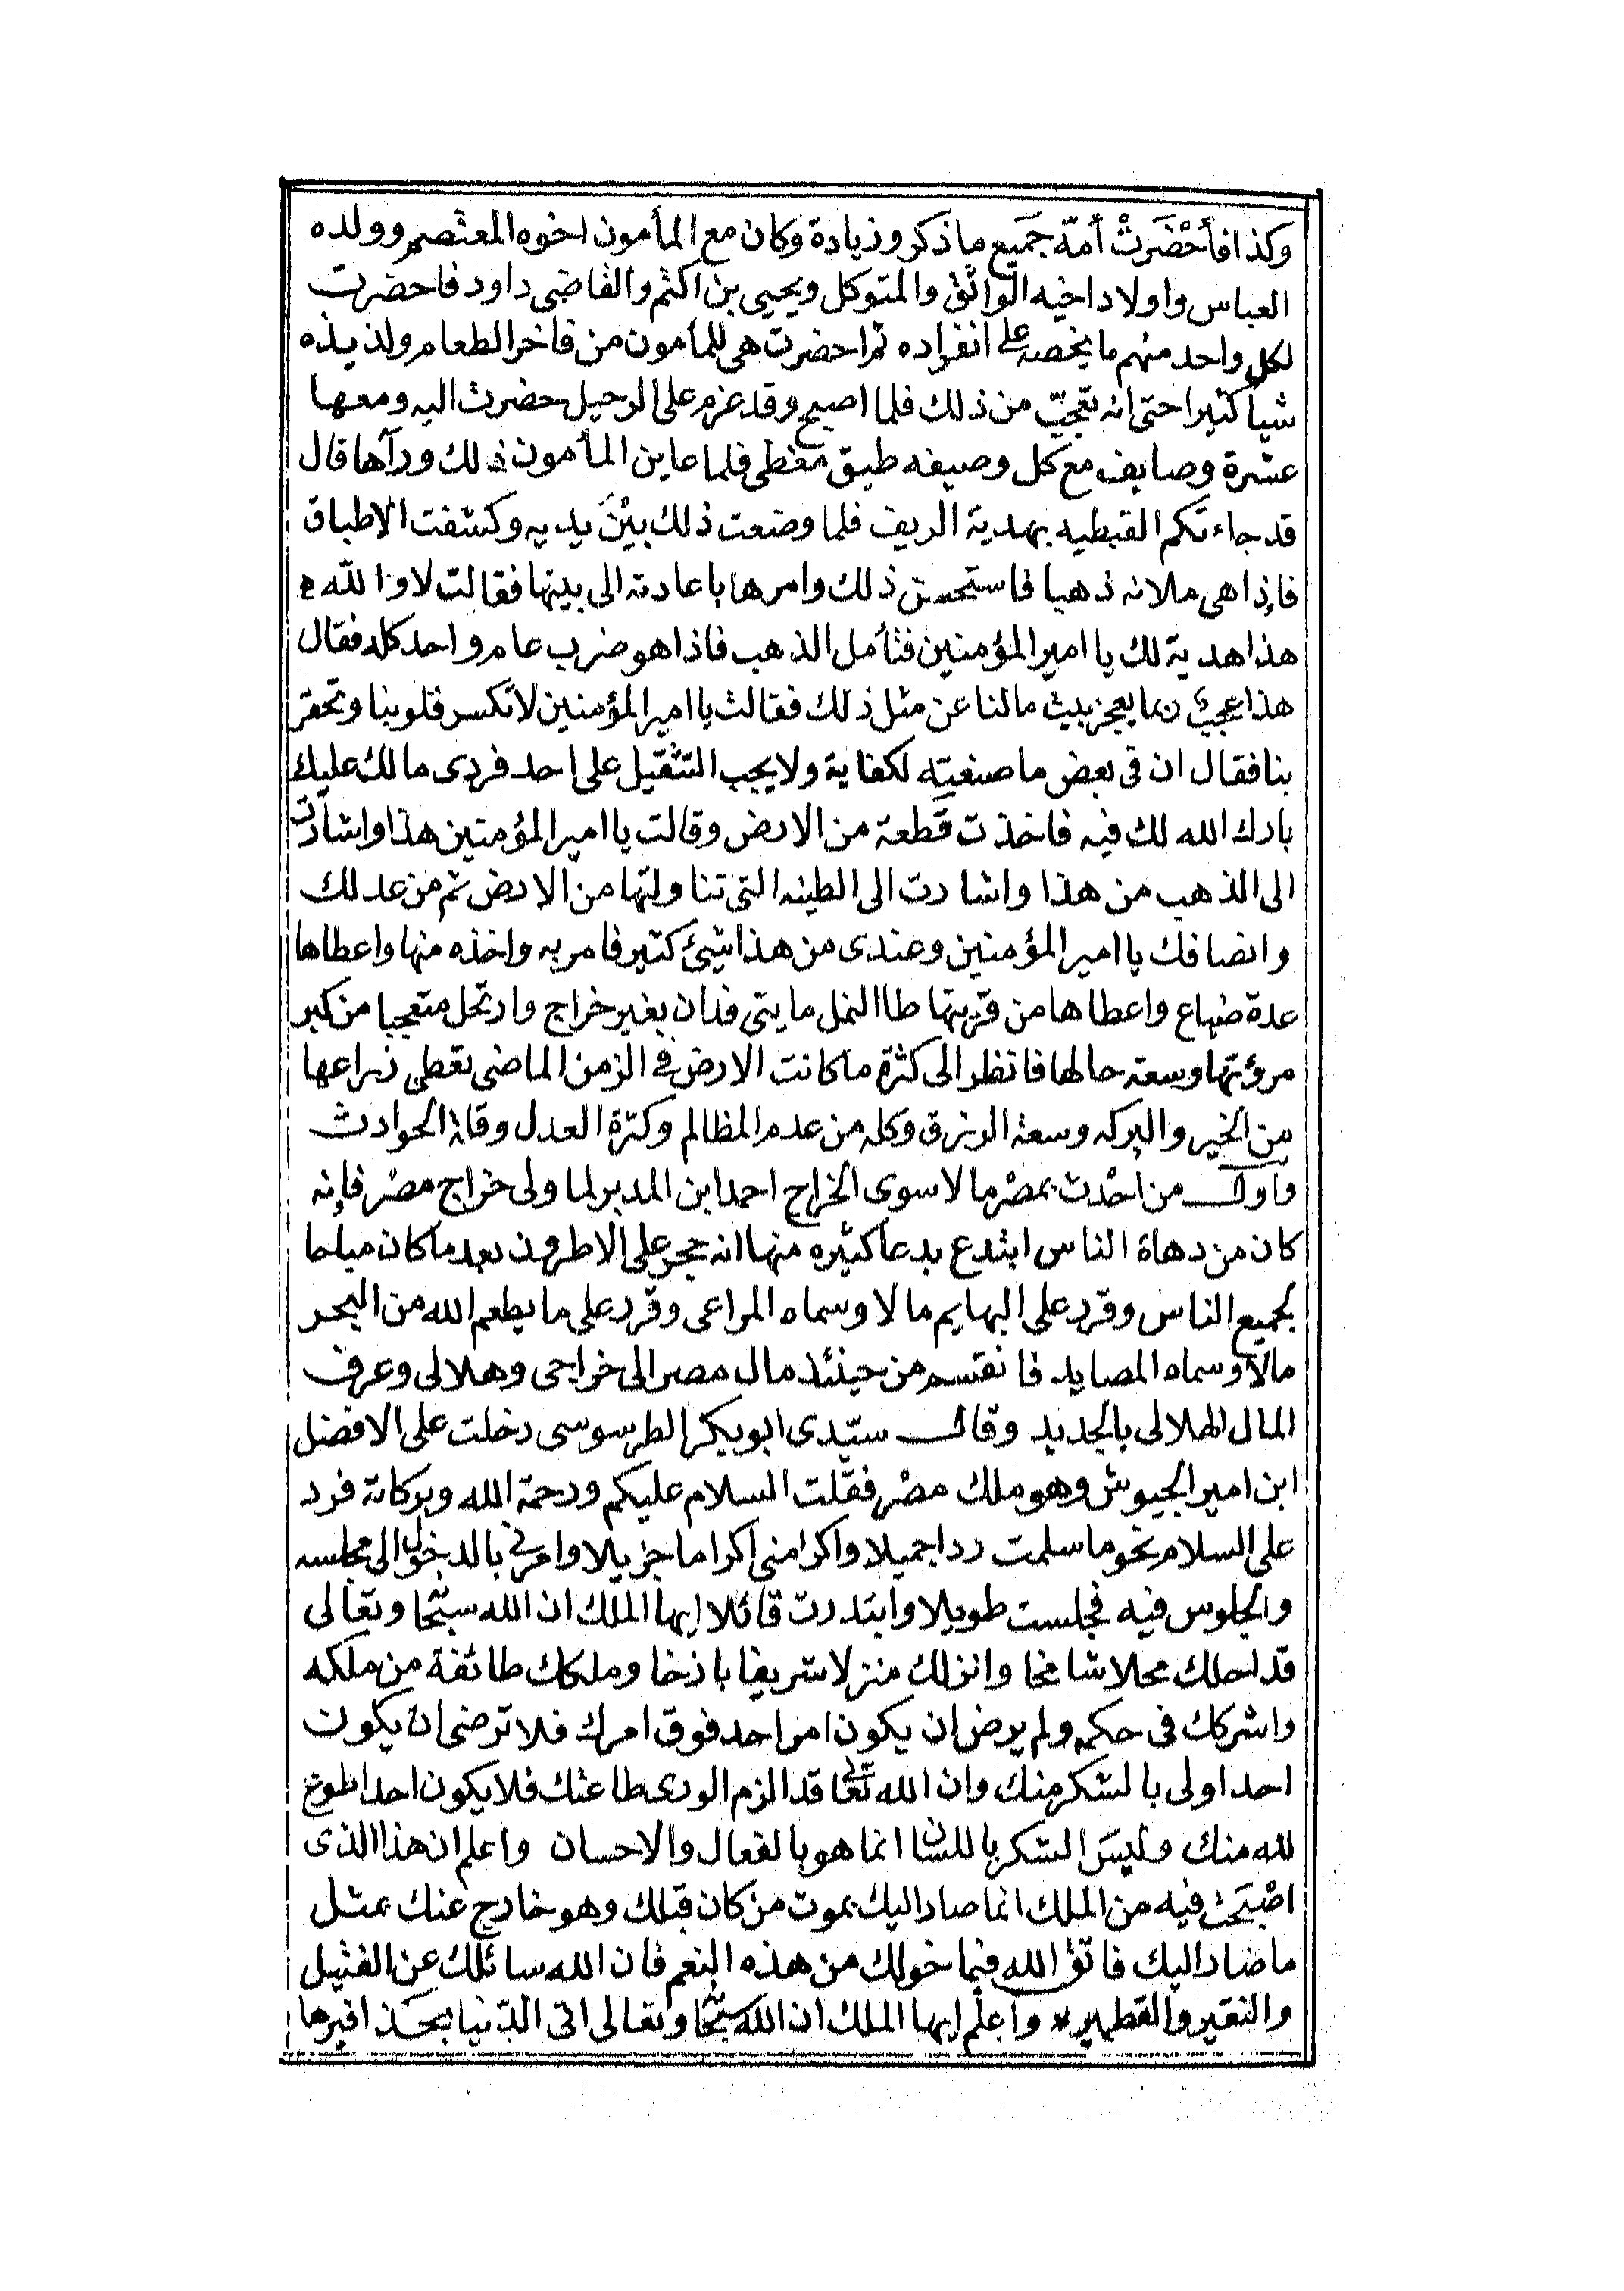 وكذا فأحْضَرتْ أمّه جَميع ما ذكر وزيادة وكان مع المأمون اخوه المعتصم وولده
العباس واولاد اخيه الواثق والمتوكل ويحيى بن اكثم والقاضى داود فاحضرت
لكل واحد منهم ما يخصه على انفراده ثم احضرت هى للمأمون من فاخر الطعام ولذيذه
شيأ كثيرا حتى انه تعجّب من ذلك فلما اصبح وقد عزم على الرحيل حضرت اليه ومعها
عشرة وصايف مع كل وصيفه طبق مغطى فلما عاين المأمون ذلك ورآها قال
قد جاءتكم القبطيه بهدية الريف فلما وضعت ذلك بيْنَ يديه وكشفت الاطباق
فإذا هى ملانه ذهبا فاستحسن ذلك وامرها باعادته الى بيتها فقالت لا والله
هذا هدية لك يا امير المؤمنين فتأمل الذهب فاذا هو ضرب عام واحد كله فقال
هذا عجيب ربما يعجز بيت مالنا عن مثل ذلك فقالت يا امير المؤمنين لا تكسر قلوبنا وتحقر
بنا فقال ان فى بعض ما صنعتيه لكفاية ولا يجب التثقيل على احد فردى مالك عليك
بارك الله لك فيه فاخذت قطعة من الارض وقالت يا امير المؤمنين هذا واشارت
الى الذهب من هذا واشارت الى الطينه التى تناولتها من الارض ثم من عدلك
وانصافك يا امير المؤمنين وعندى من هذا شيئ كثير فامر به واخذه منها واعطاها
عدة ضياع واعطاها من قريتها طاالنمل مايتى فدان بغير خراج وارتحل متعجبا من كبر
مروءتها وسعة حالها فانظر الى كثرة ما كانت الارض فى الزمن الماضى تعطى زراعها
من الخير والبركه وسعة الرزق وكله من عدم المظالم وكثرة العدل وقلة الحوادث
واول من احْدث بمصر مالا سوى الخراج احمد ابن المدبر لما ولى خراج مصْر فإنه
كان من دهاة الناس ابتدع بدعا كثيره منها انه حجر على الاطرون بعد ما كان مباحا
لجميع الناس وقرر على البهايم مالا وسماه المراعى وقرر على ما يطعم الله من البحر
مالا وسماه المصايد فانقسم من حينئذ مال مصر الى خراجى وهلالى وعرف
المال الهلالى بالجديد وقال سيّدى ابو بكر الطرسوسى دخلت على الافضل
ابن امير الجيوش وهو ملك مصْر فقلت السلام عليكم ورحمة الله وبركاته فرد
على السلام نحو ما سلمت ردا جميلا واكرامنى اكراما جزيلا وامرنى بالدخول الى مجلسه
والجلوس فيه فجلست طويلا وابتدرت قائلا ايها الملك ان الله سبحا وتعالى
قد احلك محلا شامخا وانزلك منزلا شريفا باذخا وملكك طائفة من ملكه
واشركك فى حكمه ولم يرض ان يكون امر احد فوق امرك فلا ترضى ان يكون
احد اولى بالشكر منك وان الله تعالى قد الزم الورى طاعتك فلا يكون احد اطوع
لله منك وليسَ الشكر باللسان انما هو بالفعال والاحسان واعلم ان هذا الذى
اصْبَحْت فيه من الملك انما صار اليك بموت من كان قبلك وهو خارج عنك بمثل
ما صار اليك فاتق الله فيما خولك من هذه النعم فان الله سائلك عن الفتيل
والنقير والقطمير* واعلم ايها الملك ان الله سبحا وتعالى اتى الدّنيا بحذافيرها